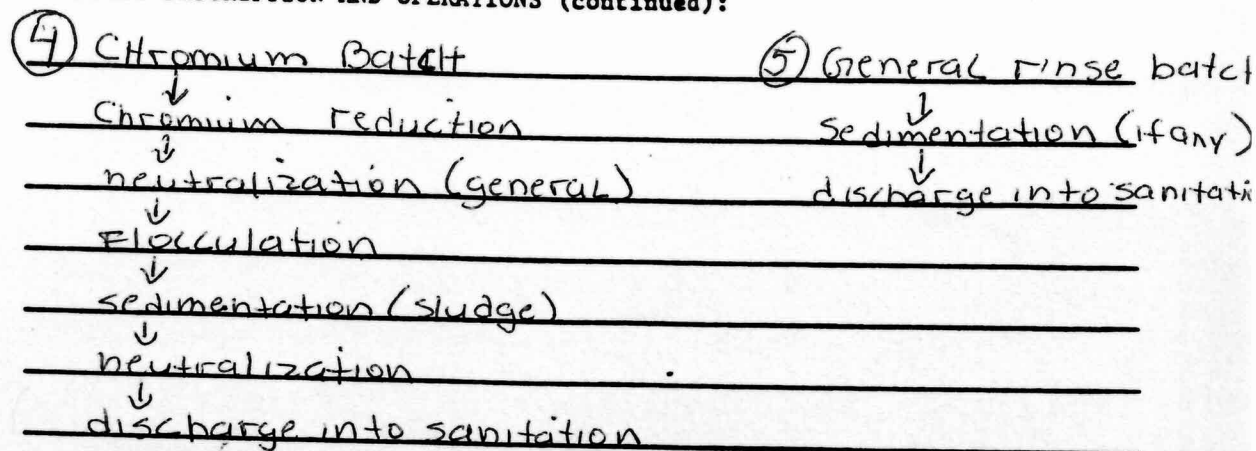 AND OPERATIONS (continued):
④ CHromium Batch
↓
Chromium reduction
↓
neutralization (general)
↓
Flocculation
↓
sedimentation (sludge)
↓
neutralization
↓
discharge into sanitation
⑤ General rinse batch
↓
Sedimentation (if any)
↓
discharge into sanitati